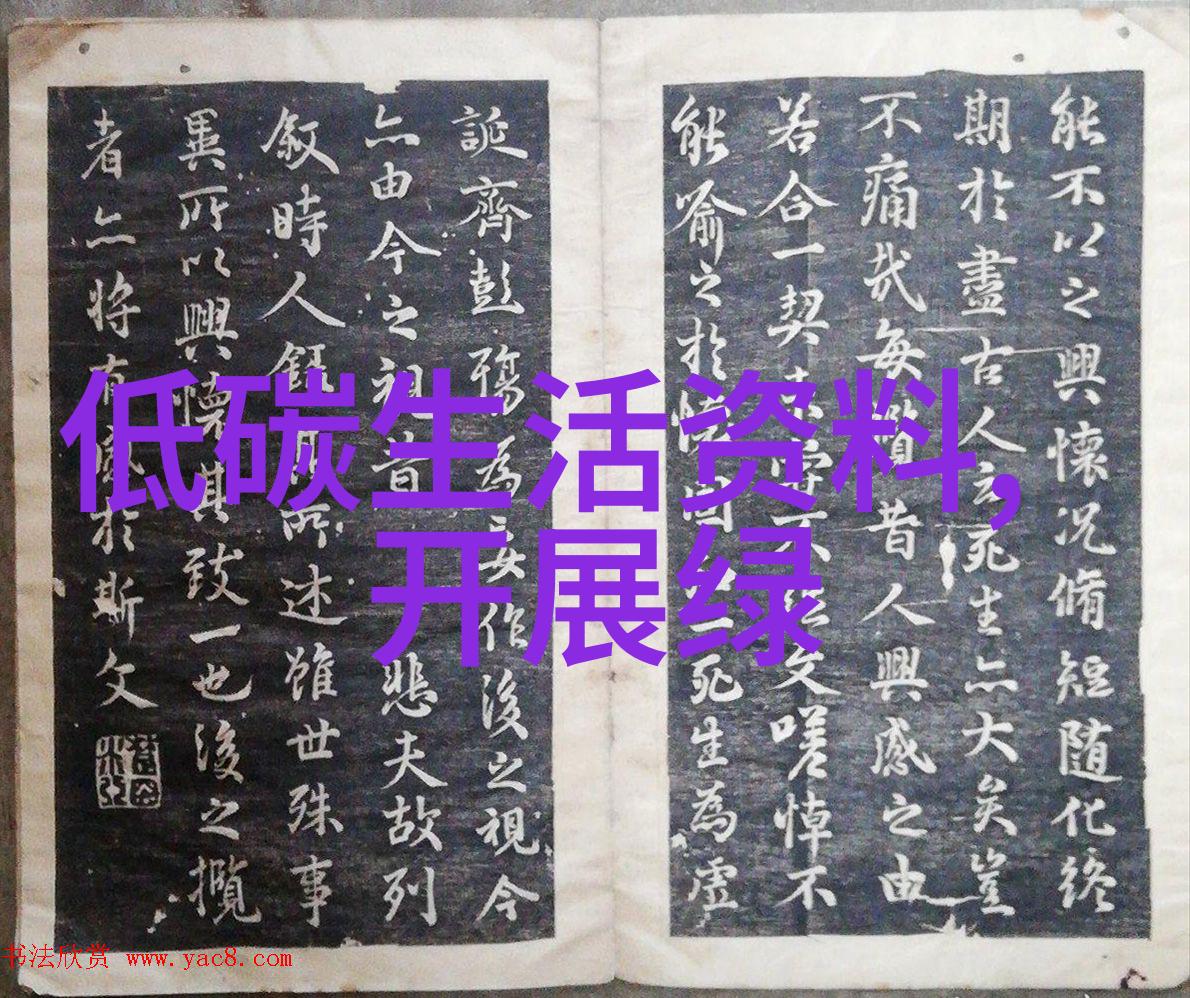 能不以之興懷況脩短隨化終
期於盡古人云死生亦大矣豈
不痛哉每攬昔人興感之由
若合一契未嘗不臨文嗟悼不
能喻之於懷固一死生為虛
誕齊彭殤為妄作後之視今
亦由今之視昔悲夫故列
敘時人錄其所述雖世殊事
異所以興懷其致一也後之攬
者亦將有感於斯文
低碳生活资料,
开展绿
书法欣赏 www.yac8.com